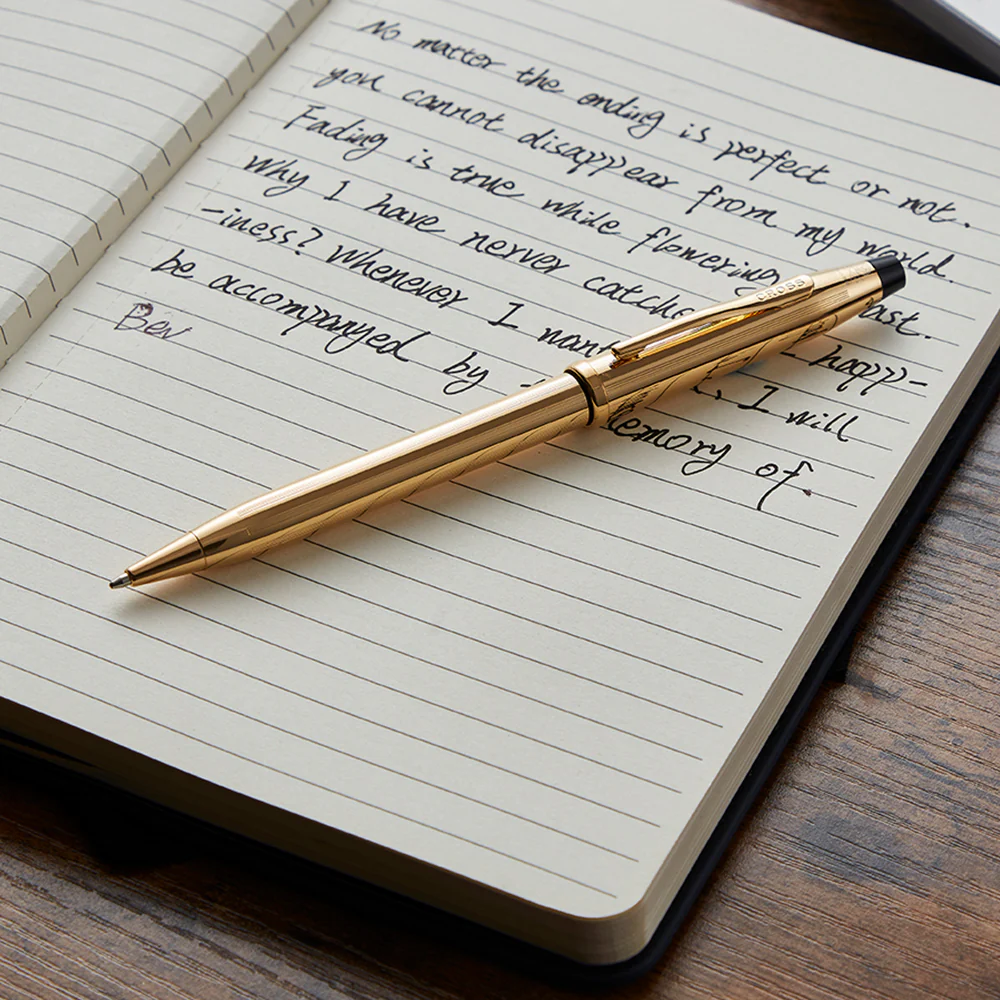 No matter the ending is perfect or not.
you cannot disappear from my world.
Fading is true while flowering past.
Why I have nerver catche happ-
-iness? Whenever I want I will
be accompanyed by memory of.
Bev
CROSS